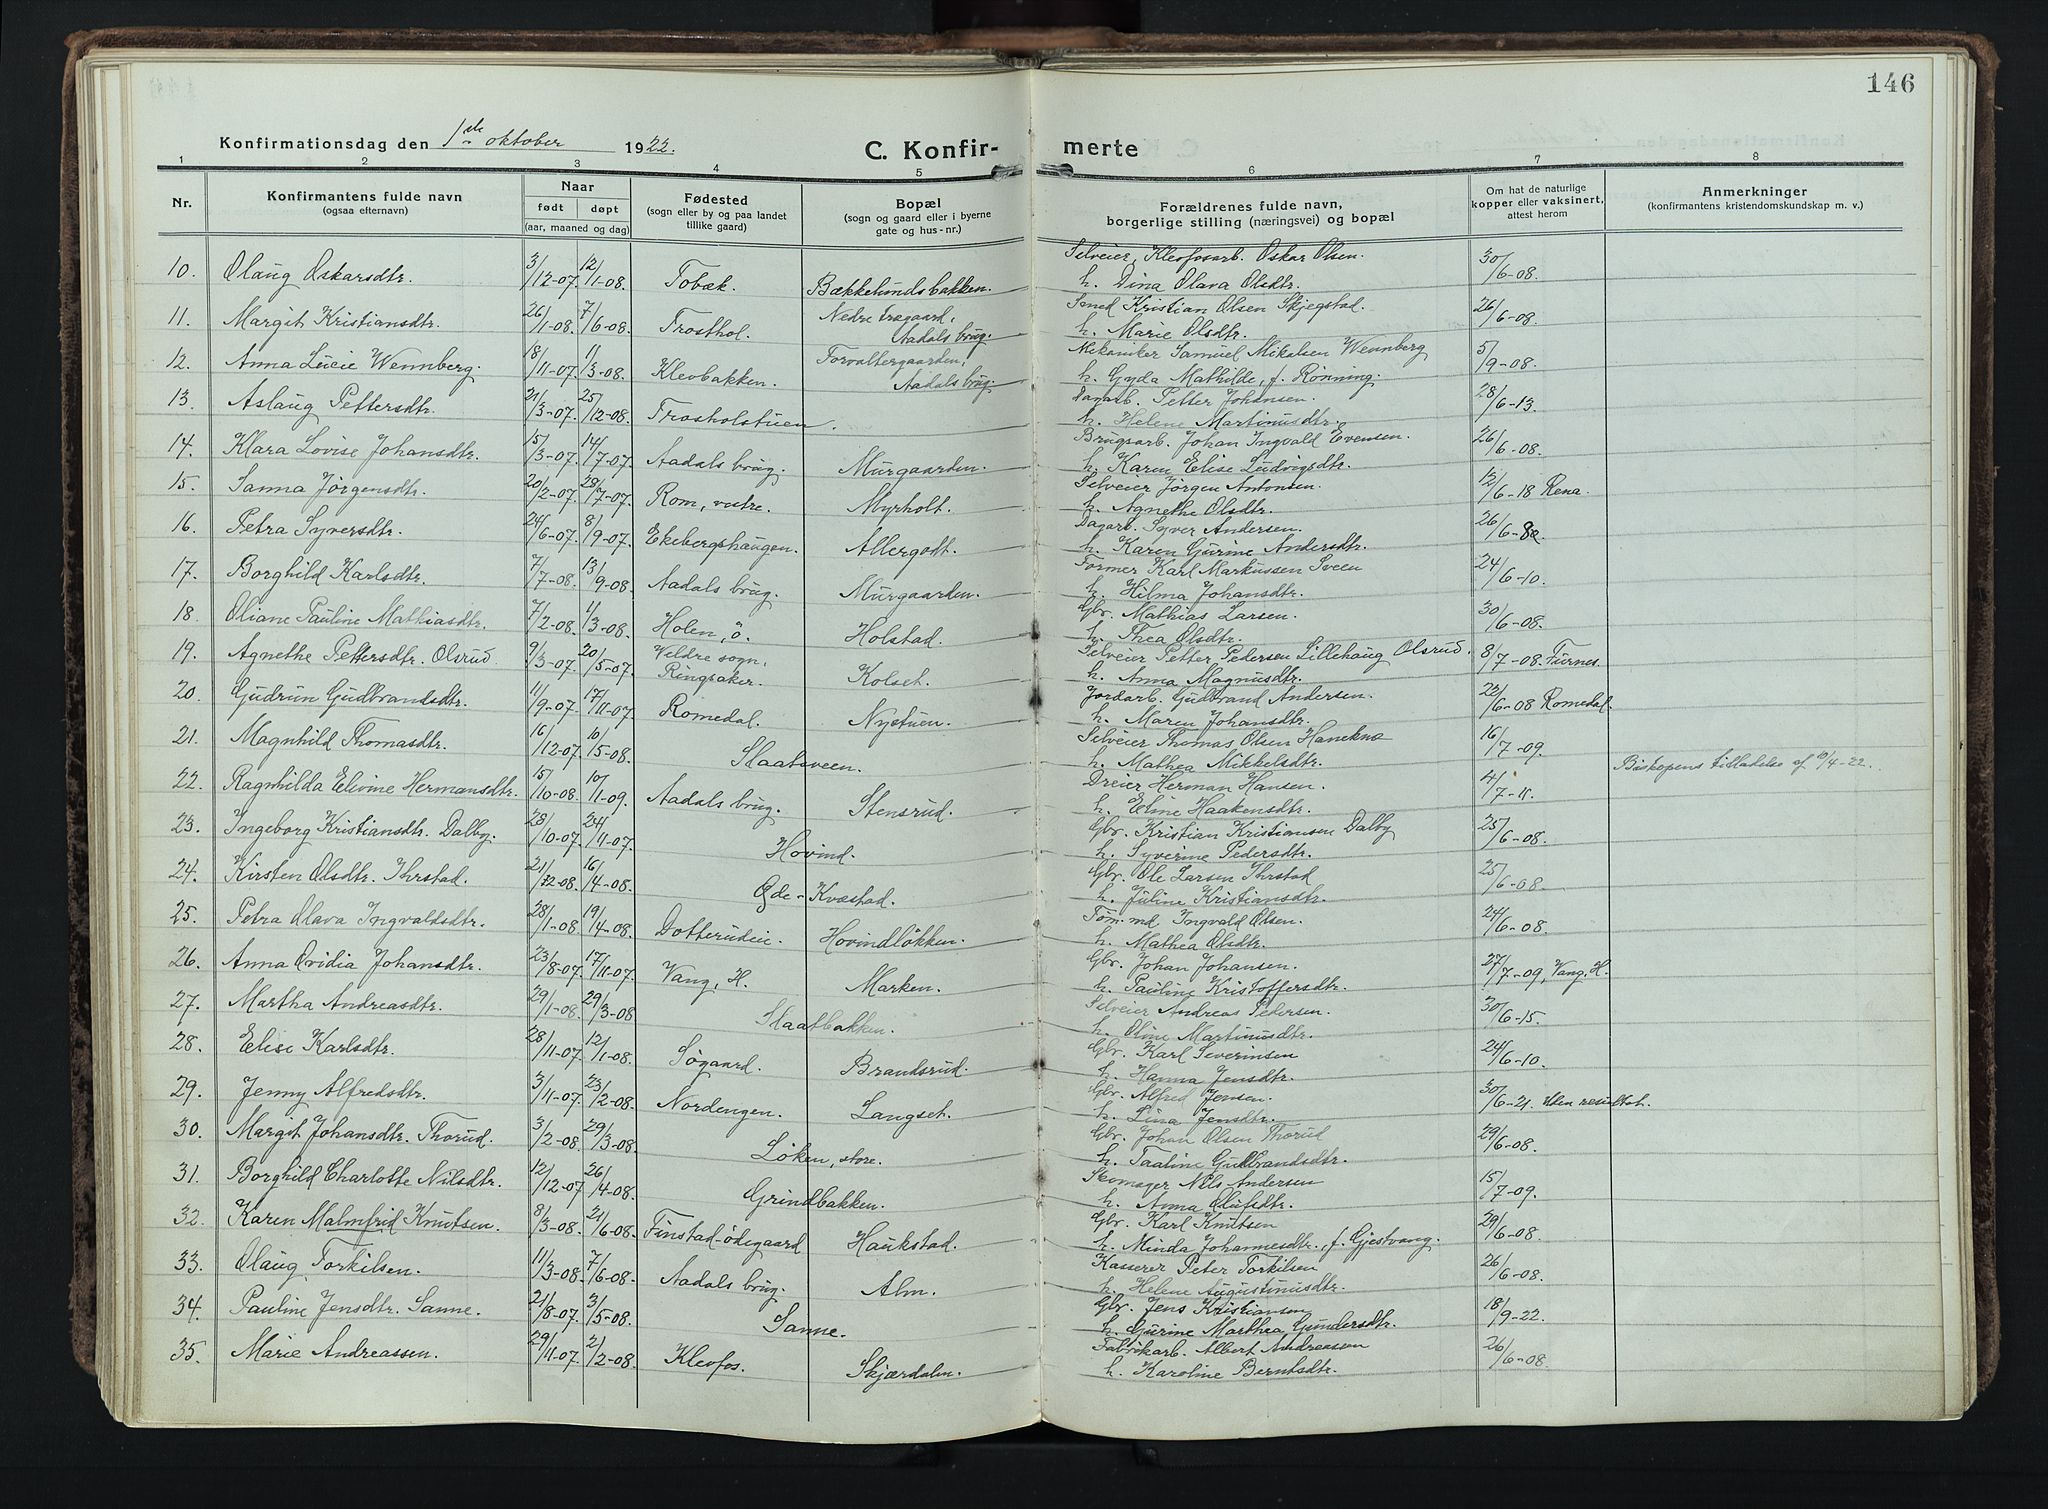 146
Konfirmationsdag den 1ste oktober 1922.
C. Konfir- merte
1 2 3 4 5 6 7 8
Nr. Konfirmantens fulde navn (ogsaa efternavn) Naar født døpt (aar, maaned og dag) Fødested (sogn eller by og paa landet tillike gaard) Bopæl (sogn og gaard eller i byerne gate og hus-nr.) Forældrenes fulde navn, borgerlige stilling (næringsvei) og bopæl Om hat de naturlige kopper eller vaksinert, attest herom Anmerkninger (konfirmantens kristendomskundskap m. v.)
10. Olaug Oskarsdtr. 3/12-07. 12/1-08. Tobæk. Bækkelundsbakken. Selveier, Klevfosarb. Oskar Olsen. 30/6-08.
h. Dina Olava Olsdtr.
11. Margit Kristiansdtr. 26/1-08. 7/6-08. Trosthol. Nedre tregaard, Aadals brug. Smed Kristian Olsen Skjegstad. 26/6-08.
h. Marie Olsdtr.
12. Anna Lucie Wennberg. 18/11-07. 1/3-08. Klevbakken. Forvaltergaarden, Aadals brug. Mekaniker Samuel Mikalsen Wennberg 5/9-08.
h. Gyda Mathilde, f. Rønning.
13. Aslaug Pettersdtr. 21/3-07. 25/12-08. Trosholstuen. Dagarb. Petter Johansen. 28/6-13.
h. Helene Martinusdtr.
14. Klara Lovise Johansdtr. 15/3-07. 14/7-07. Aadals brug. Murgaarden. Brugsarb. Johan Ingvald Evensen. 26/6-08.
h. Karen Elise Ludvigsdtr.
15. Sanna Jørgensdtr. 20/2-07. 28/7-07. Rom, vestre. Myrholt. Selveier Jørgen Antonsen. 12/6-18 Rena.
h. Agnethe Olsdtr.
16. Petra Syversdtr. 24/6-07. 8/9-07. Ekebergshaugen. Allergodt. Dagarb. Syver Andersen. 26/6-
h. Karen Gurine Andersdtr.
17. Borghild Karlsdtr. 7/7-08. 13/9-08. Aadals brug. Murgaarden. Former Karl Markussen Sveen 24/6-10.
h. Hilma Johansdtr.
18. Oliane Pauline Mathiasdtr. 7/2-08. 1/3-08. Holen, ö. Holstad. Gbr. Mathias Larsen. 30/6-08.
h. Thea Olsdtr.
19. Agnethe Pettersdtr. Olsrud 9/3-07. 20/5-07. Veldre sogn, Ringsaker. Kolset. Selveier Petter Pedersen Lillehaug Olsrud. 8/7-08. Furnes.
h. Anna Magnusdtr.
20. Gudrun Gudbrandsdtr. 11/9-07. 17/11-07. Romedal. Nystuen. Jordarb. Gudbrand Andersen. 22/6-08 Romedal.
h. Maren Johansdtr.
21. Magnhild Thomasdtr. 16/12-07. 10/5-08. Slaatsveen. Selveier Thomas Olsen Hanekne 16/7-09.
h. Mathea Mikkelsdtr. Biskopens tilladelse af 10/4-22.
22. Ragnhilda Elivine Hermansdtr. 15/10-08. 10/1-09. Aadals brug. Stensrud. Dreier Herman Hansen. 4/7-11.
h. Eline Haakensdtr.
23. Ingeborg Kristiansdtr. Dalby. 28/10-07. 24/11-07. Hovind. Gbr. Kristian Kristiansen Dalby 25/6-08.
h. Syverine Pedersdtr.
24. Kirsten Olsdtr. Ihrstad. 21/2-08. 16/4-08. Øde-Kvæstad. Gbr. Ole Larsen Ihrstad 25/6-08.
h. Juline Kristiansdtr.
25. Petra Olava Ingvaldsdtr. 28/1-08. 19/4-08. Dotterudeie. Hovindløkken. Tøm.md. Ingvald Olsen. 24/6-08.
h. Mathea Olsdtr.
26. Anna Ovidia Johansdtr. 23/8-07. 17/11-07. Vang, H. Marken. Gbr. Johan Johansen. 27/7-09, Vang, H.
h. Pauline Kristoffersdtr.
27. Martha Andreasdtr. 29/1-08. 29/3-08 Slaatbakken. Selveier Andreas Pedersen. 30/6-15.
h. Oline Martinusdtr.
28. Elise Karlsdtr. 28/11-07. 12/1-08. Søgaard. Brandsrud. Gbr. Karl Severinsen 24/6-10.
h. Hanna Jensdtr.
29. Jenny Alfredsdtr. 3/11-07. 23/2-08. Nordengen. Langset. Gbr. Alfred Jensen. 30/6-21. Uden resultat.
h. Lina Jensdtr.
30. Margit Johansdtr. Thorud. 3/2-08. 29/3-08. Løken, store. Gbr. Johan Olsen Thorud 29/6-08.
h. Taaline Gudbrandsdtr.
31. Borghild Charlotte Nilsdtr. 12/12-07. 26/4-08. Grindbakken. Skomager Nils Andersen 15/7-09.
h. Anna Olufsdtr.
32. Karen Malmfrid Knutsen. 8/3-08. 21/6-08. Finstad-ødegaard Haukstad. Gbr. Karl Knutsen 29/6-08.
h. Minda Johannesdtr., f. Gjestvang.
33. Olaug Torkilsen. 11/3-08. 7/6-08. Aadals brug. Alm. Kasserer Peter Torkilsen 26/6-08.
h. Helene Augustinusdtr.
34. Pauline Jensdtr. Sanne. 21/8-07. 3/5-08. Sanne. Gbr. Jens Kristiansen 18/9-22.
h. Gurine Marthea Gundersdtr.
35. Marie Andreassen. 29/11-07. 2/2-08. Klevfos. Skjærdalen. Fabrikarb. Albert Andreassen 26/6-08.
h. Karoline Berntsdtr.